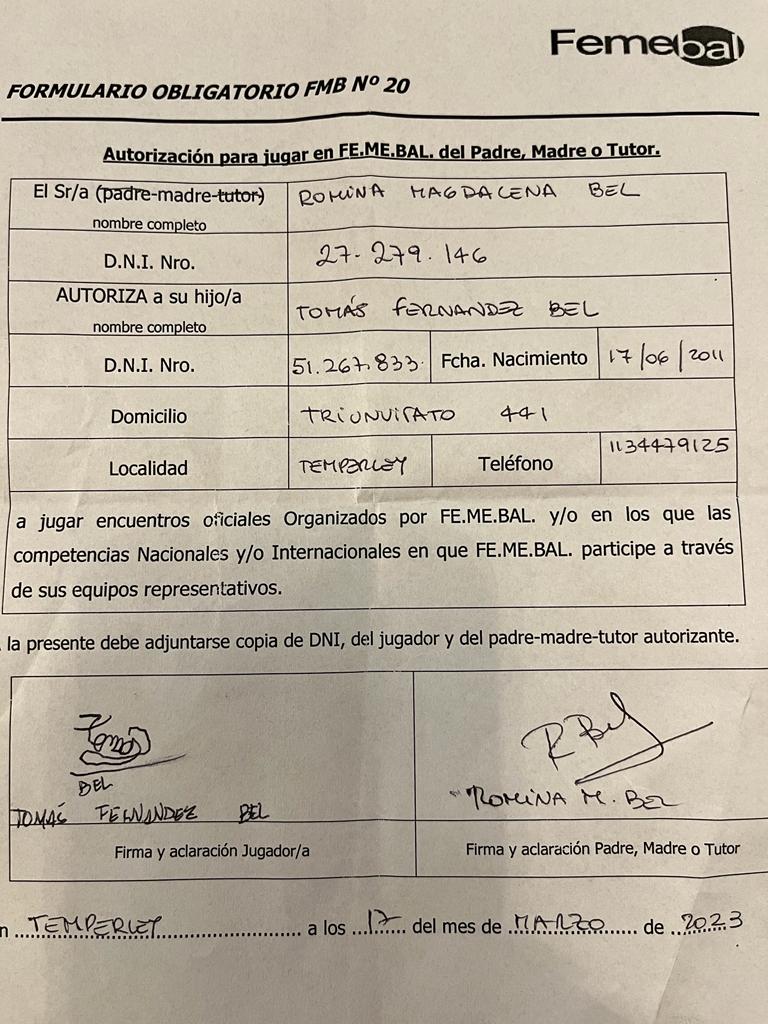 Femebal
FORMULARIO OBLIGATORIO FMB Nº 20
Autorización para jugar en FE.ME.BAL. del Padre, Madre o Tutor.
El Sr/a (padre-madre-tutor) ROMINA MAGDALENA BEL
nombre completo
D.N.I. Nro. 27-279.146
AUTORIZA a su hijo/a TOMÁS FERNANDEZ BEL
nombre completo
D.N.I. Nro. 51.267.833. Fcha. Nacimiento 17/06/2011
Domicilio TRIUNVIRATO 441
Localidad TEMPERLEY Teléfono 1134479125
a jugar encuentros oficiales Organizados por FE.ME.BAL. y/o en los que las
competencias Nacionales y/o Internacionales en que FE.ME.BAL. participe a través
de sus equipos representativos.
la presente debe adjuntarse copia de DNI, del jugador y del padre-madre-tutor autorizante.
Tomás R Bel
BEL
TOMÁS FERNANDEZ BEL ROMINA M. BEL
Firma y aclaración Jugador/a Firma y aclaración Padre, Madre o Tutor
n TEMPERLEY a los 17 del mes de MARZO de 2023